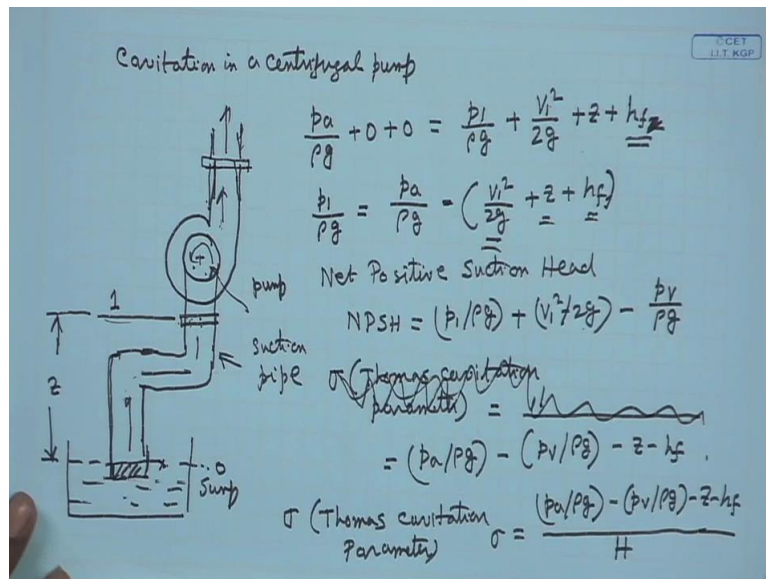 Cavitation in a centrifugal pump
© CET
I.I.T. KGP
pa/ρg + 0 + 0 = p1/ρg + V1²/2g + z + hf
p1/ρg = pa/ρg - (V1²/2g + z + hf)
Net Positive Suction Head
NPSH = (p1/ρg) + (V1²/2g) - pv/ρg
σ (Thomas cavitation
parameter) =
= (pa/ρg) - (pv/ρg) - z - hf .
σ (Thomas cavitation
Parameter) σ = (pa/ρg) - (pv/ρg) - z - hf / H
pump
1
suction
pipe
z
0
Sump